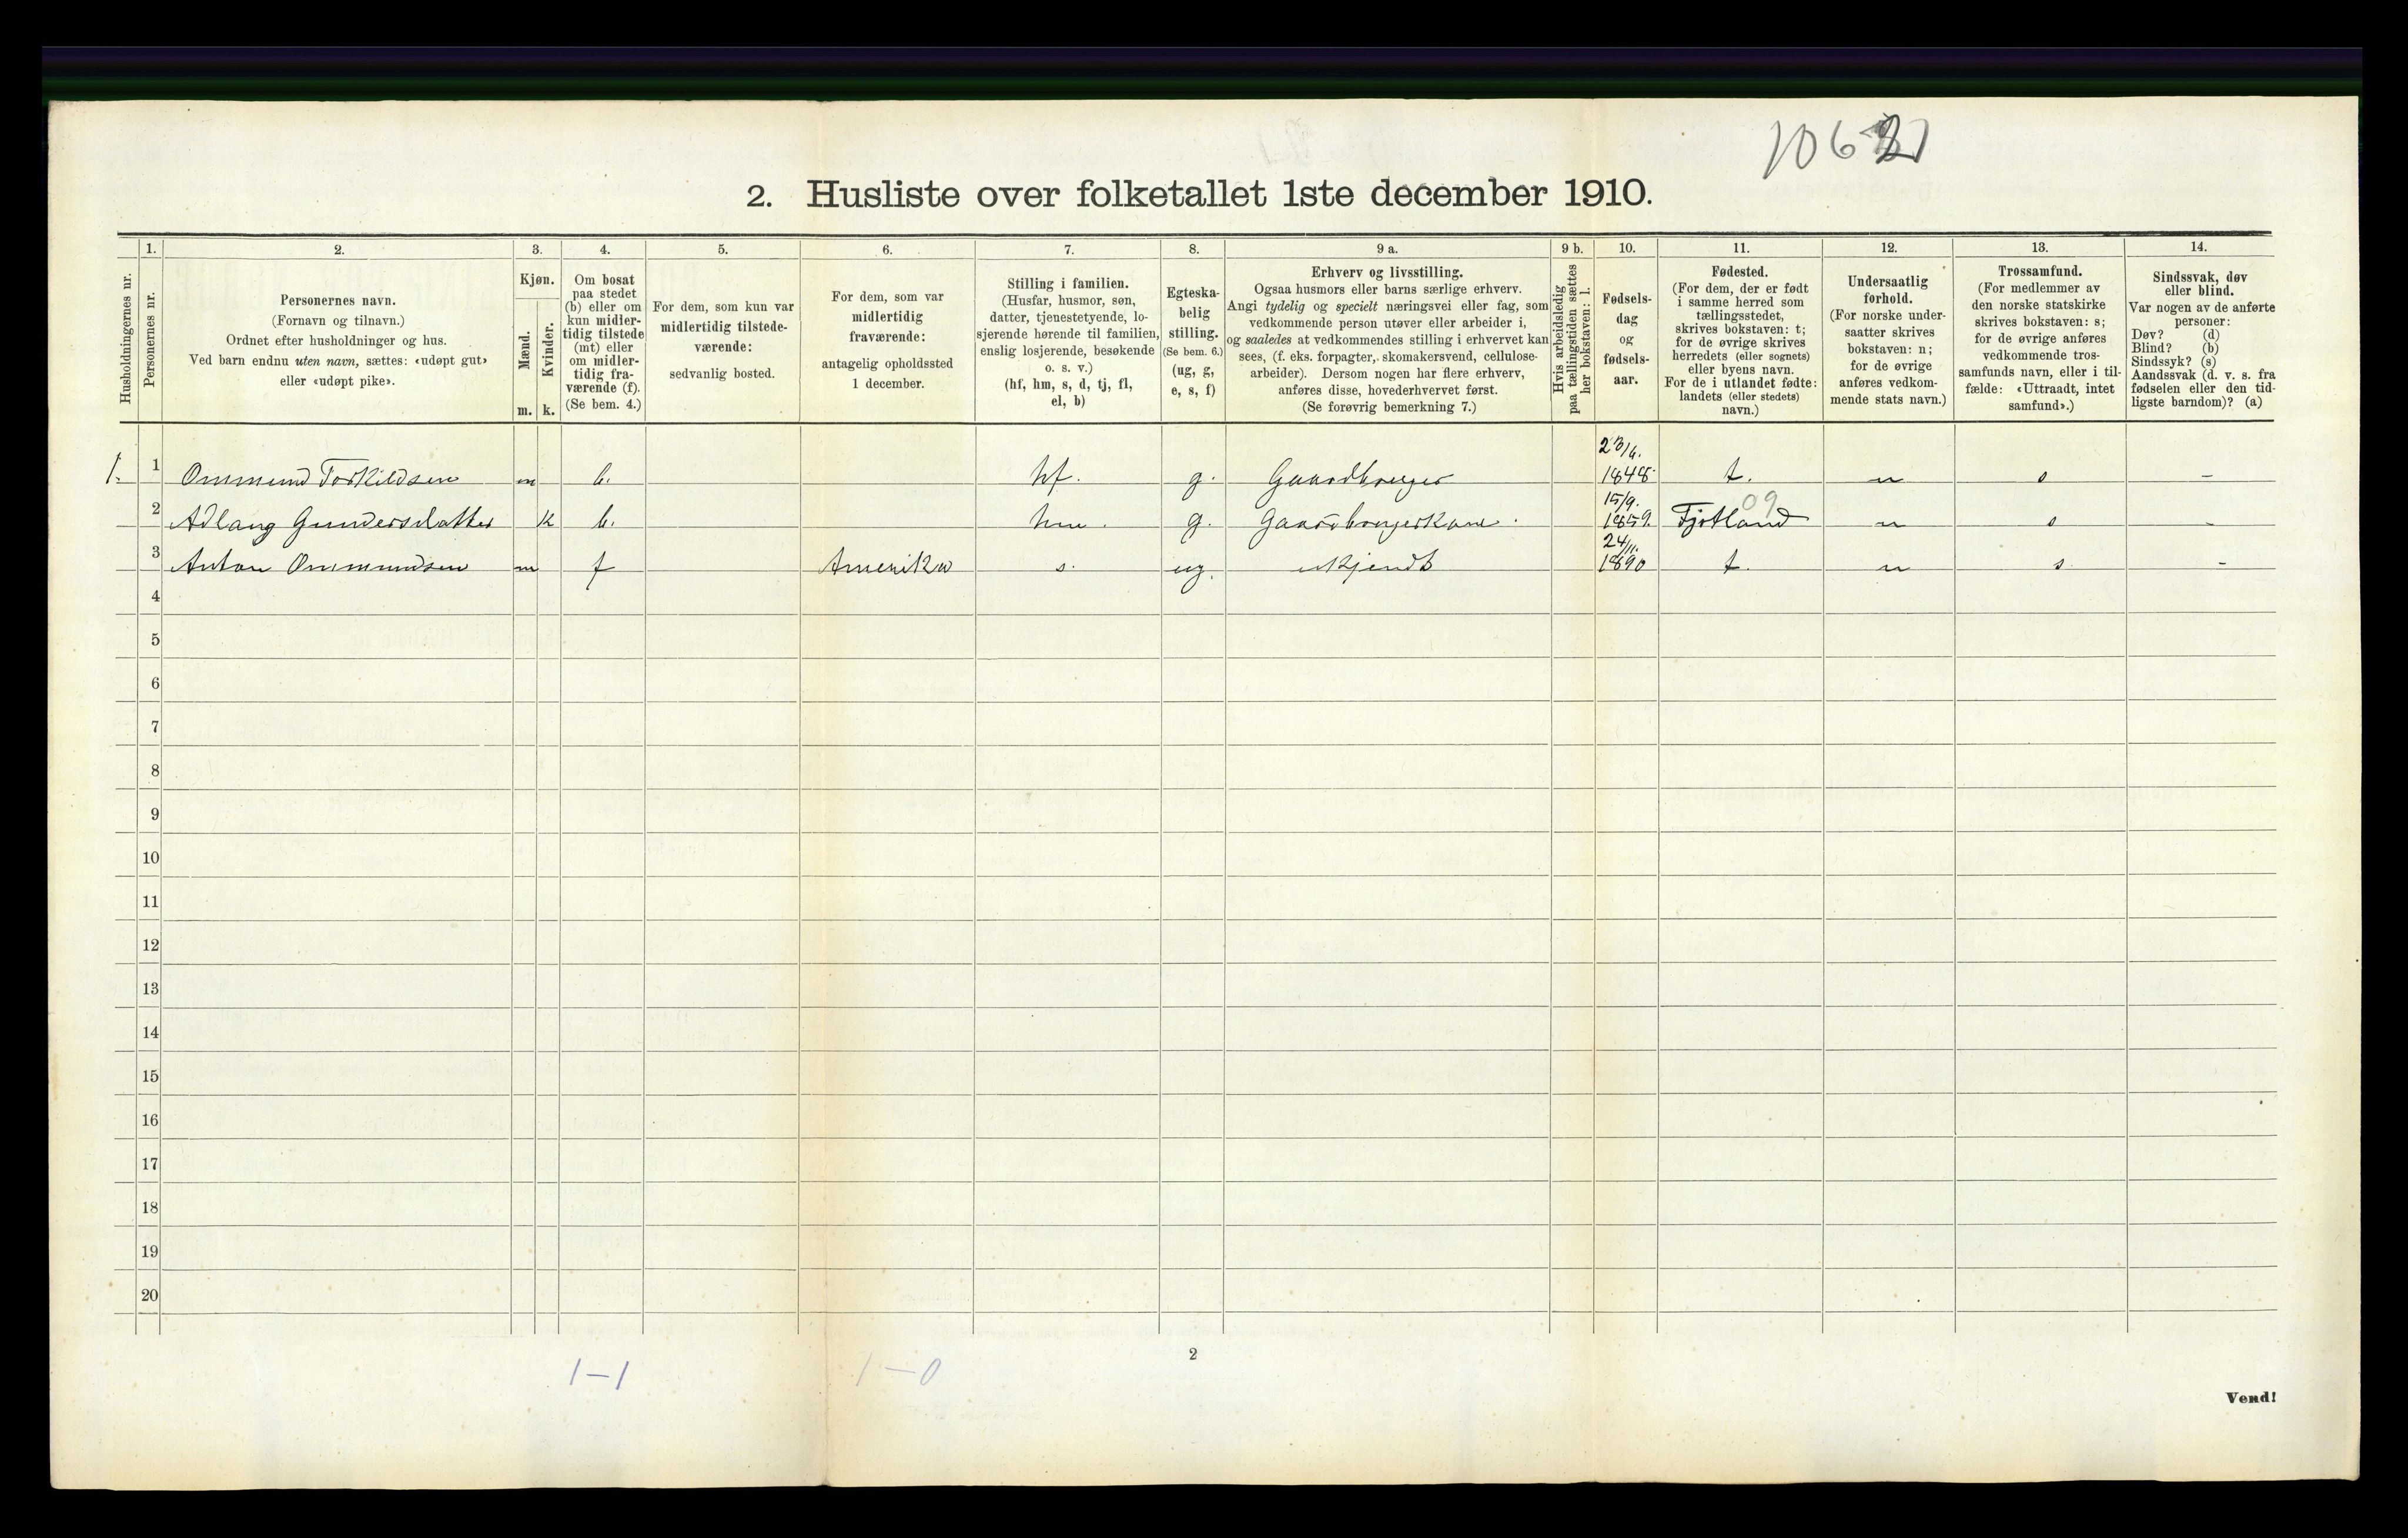 2. Husliste over folketallet 1ste december 1910.
1. 2. 3. 4. 5. 6. 7. 8. 9 a. 9 b. 10. 11. 12. 13. 14.
Husholdningernes nr.
Personernes nr.
Personernes navn.
(Fornavn og tilnavn.)
Ordnet efter husholdninger og hus.
Ved barn endnu uten navn, sættes: «udøpt gut»
eller «udøpt pike».
Kjøn.
Mænd.
Kvinder.
m. k.
Om bosat
paa stedet
(b) eller om
kun midler-
tidig tilstede
(mt) eller
om midler-
tidig fra-
værende (f).
(Se bem. 4.)
For dem, som kun var
midlertidig tilstede-
værende:
sedvanlig bosted.
For dem, som var
midlertidig
fraværende:
antagelig opholdssted
1 december.
Stilling i familien.
(Husfar, husmor, søn,
datter, tjenestetyende, lo-
sjerende hørende til familien,
enslig losjerende, besøkende
o. s. v.)
(hf, hm, s, d, tj, fl,
el, b)
Egteska-
belig
stilling.
(Se bem. 6.)
(ug, g,
e, s, f)
Erhverv og livsstilling.
Ogsaa husmors eller barns særlige erhverv.
Angi tydelig og specielt næringsvei eller fag, som
vedkommende person utøver eller arbeider i,
og saaledes at vedkommendes stilling i erhvervet kan
sees, (f. eks. forpagter, skomakersvend, cellulose-
arbeider). Dersom nogen har flere erhverv,
anføres disse, hovederhvervet først.
(Se forøvrig bemerkning 7.)
Hvis arbeidsledig
paa tællingstiden sættes
her bokstaven: l.
Fødsels-
dag
og
fødsels-
aar.
Fødested.
(For dem, der er født
i samme herred som
tællingsstedet,
skrives bokstaven: t;
for de øvrige skrives
herredets (eller sognets)
eller byens navn.
For de i utlandet fødte:
landets (eller stedets)
navn.)
Undersaatlig
forhold.
(For norske under-
saatter skrives
bokstaven: n;
for de øvrige
anføres vedkom-
mende stats navn.)
Trossamfund.
(For medlemmer av
den norske statskirke
skrives bokstaven: s;
for de øvrige anføres
vedkommende tros-
samfunds navn, eller i til-
fælde: «Uttraadt, intet
samfund».)
Sindssvak, døv
eller blind.
Var nogen av de anførte
personer:
Døv? (d)
Blind? (b)
Sindssyk? (s)
Aandssvak (d. v. s. fra
fødselen eller den tid-
ligste barndom)? (a)
1. 1 Ommund Torkildsen m b. hf. g. Gaardbruger 1848 t. n s -
2 Adlaug Gundersdatter k b. hm. g. Gaardbrugerkone. 15/9. 1859. Fjotland 09 n s -
3 Anton Ommundsen m f Amerika s. ug. ukjendt 24/11. 1890 t. n s -
4
5
6
7
8
9
10
11
12
13
14
15
16
17
18
19
20
1-1 1-0
2
Vend!